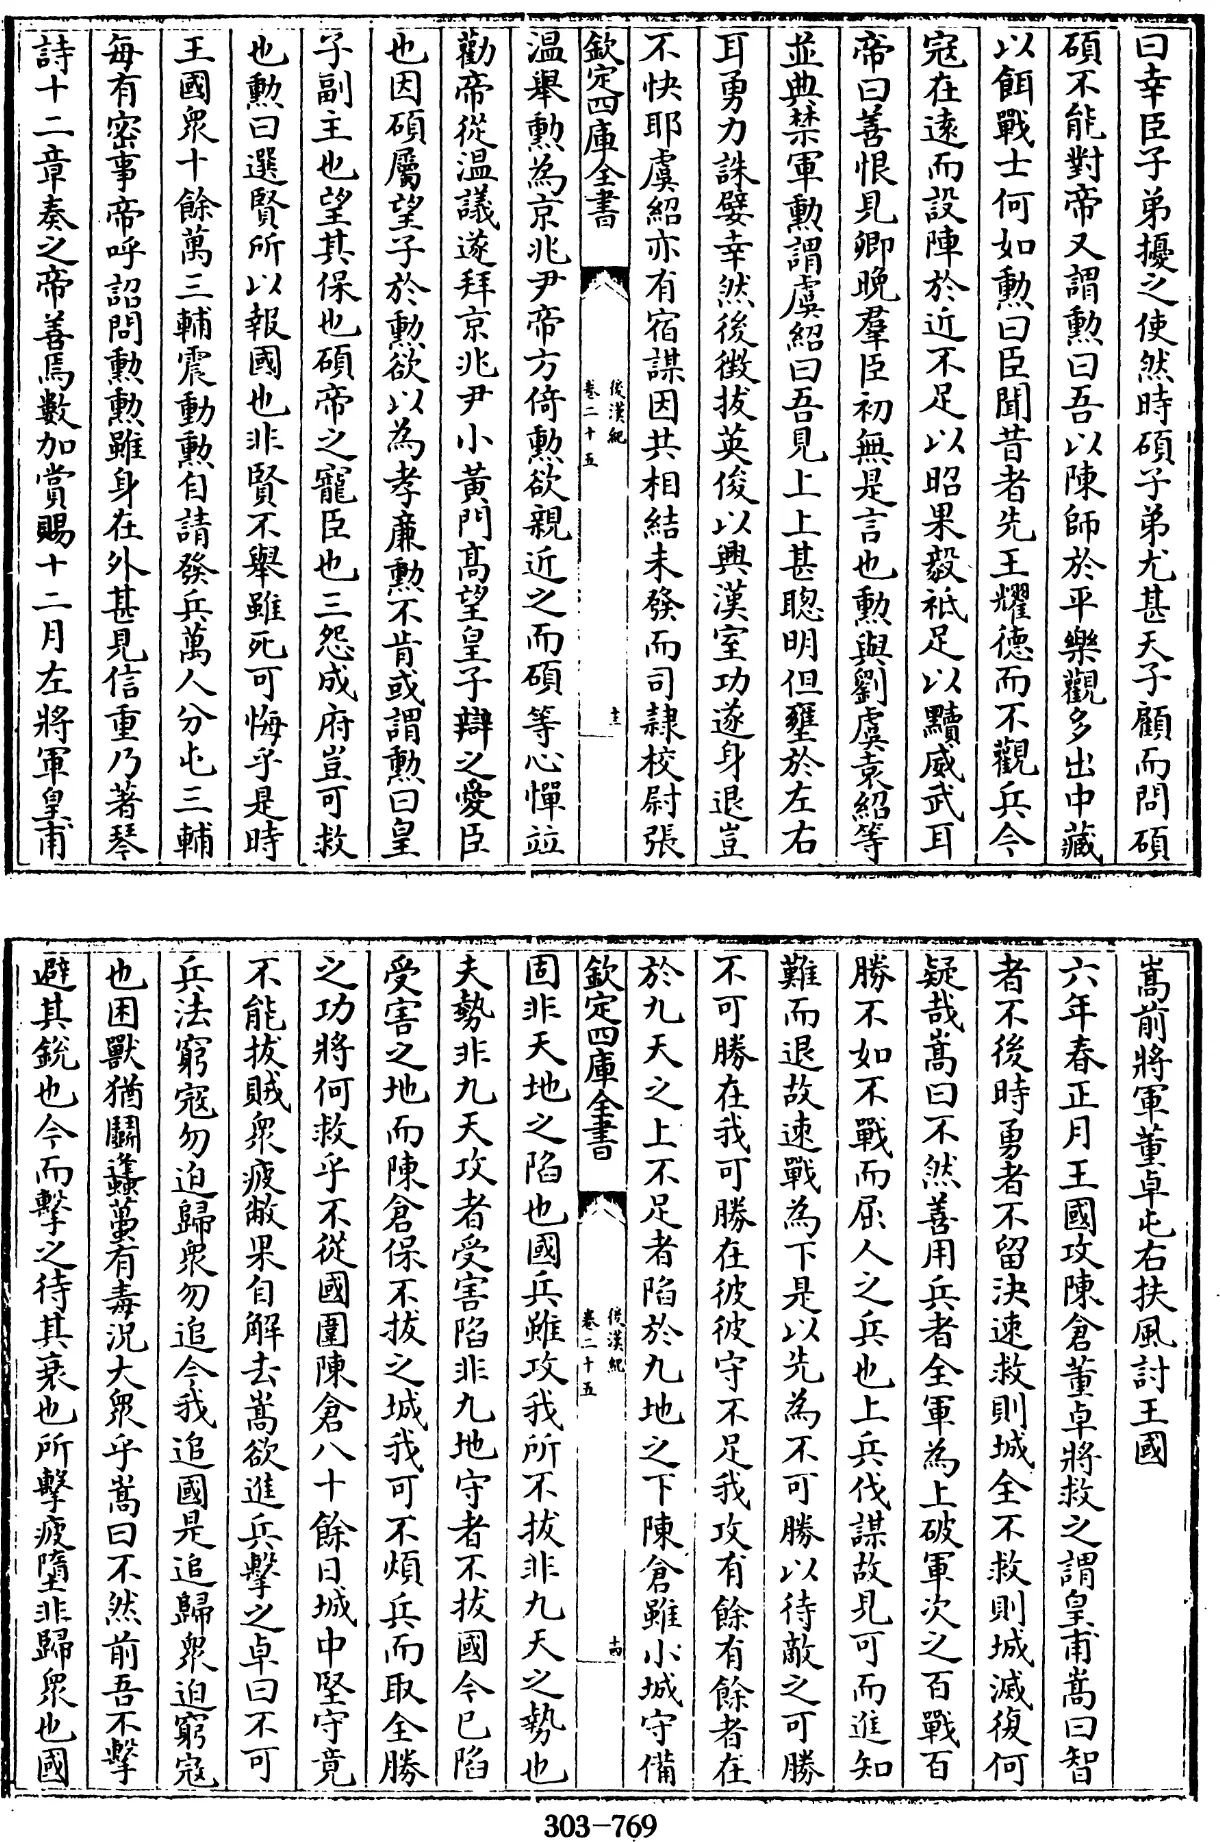 曰幸臣子弟擾之使然時碩子弟尤甚天子顧而問碩
碩不能對帝又謂勲曰吾以陳師於平樂觀多出中藏
以餌戰士何如勲曰臣聞昔者先王耀德而不觀兵今
宼在逺而設陣於近不足以昭果毅祗足以黷威武耳
帝曰善恨見卿晚羣臣初無是言也勲與劉虞袁紹等
並典禁軍勲謂虞紹曰吾見上上甚聰明但壅於左右
耳勇力誅嬖幸然後徴拔英俊以興漢室功遂身退豈
不快耶虞紹亦有宿謀因共相結未發而司隷校尉張
欽定四庫全書
後漢紀
卷二十五
十三
温舉勲為京兆尹帝方倚勲欲親近之而碩等心憚竝
勸帝從温議遂拜京兆尹小黄門髙望皇子辯之愛臣
也因碩屬望子於勲欲以為孝廉勲不肯或謂勲曰皇
子副主也望其保也碩帝之寵臣也三怨成府豈可救
也勲曰選賢所以報國也非賢不舉雖死可悔乎是時
王國衆十餘萬三輔震動勲自請發兵萬人分屯三輔
每有密事帝呼詔問勲勲雖身在外甚見信重乃著琴
詩十二章奏之帝善焉數加賞賜十二月左將軍皇甫
嵩前將軍董卓屯右扶風討王國
六年春正月王國攻陳倉董卓將救之謂皇甫嵩曰智
者不後時勇者不留決速救則城全不救則城滅復何
疑哉嵩曰不然善用兵者全軍為上破軍次之百戰百
勝不如不戰而屈人之兵也上兵伐謀故見可而進知
難而退故速戰為下是以先為不可勝以待敵之可勝
不可勝在我可勝在彼彼守不足我攻有餘有餘者在
於九天之上不足者陷於九地之下陳倉雖小城守備
欽定四庫全書
後漢紀
卷二十五
十四
固非天地之陷也國兵雖攻我所不拔非九天之勢也
夫勢非九天攻者受害陷非九地守者不拔國今已陷
受害之地而陳倉保不拔之城我可不煩兵而取全勝
之功將何救乎不從國圍陳倉八十餘日城中堅守竟
不能拔賊衆疲敝果自解去嵩欲進兵擊之卓曰不可
兵法窮寇勿迫歸衆勿追今我追國是追歸衆迫窮寇
也困獸猶鬬蠭蠆有毒况大衆乎嵩曰不然前吾不擊
避其鋭也今而擊之待其衰也所擊疲墮非歸衆也國
303-769